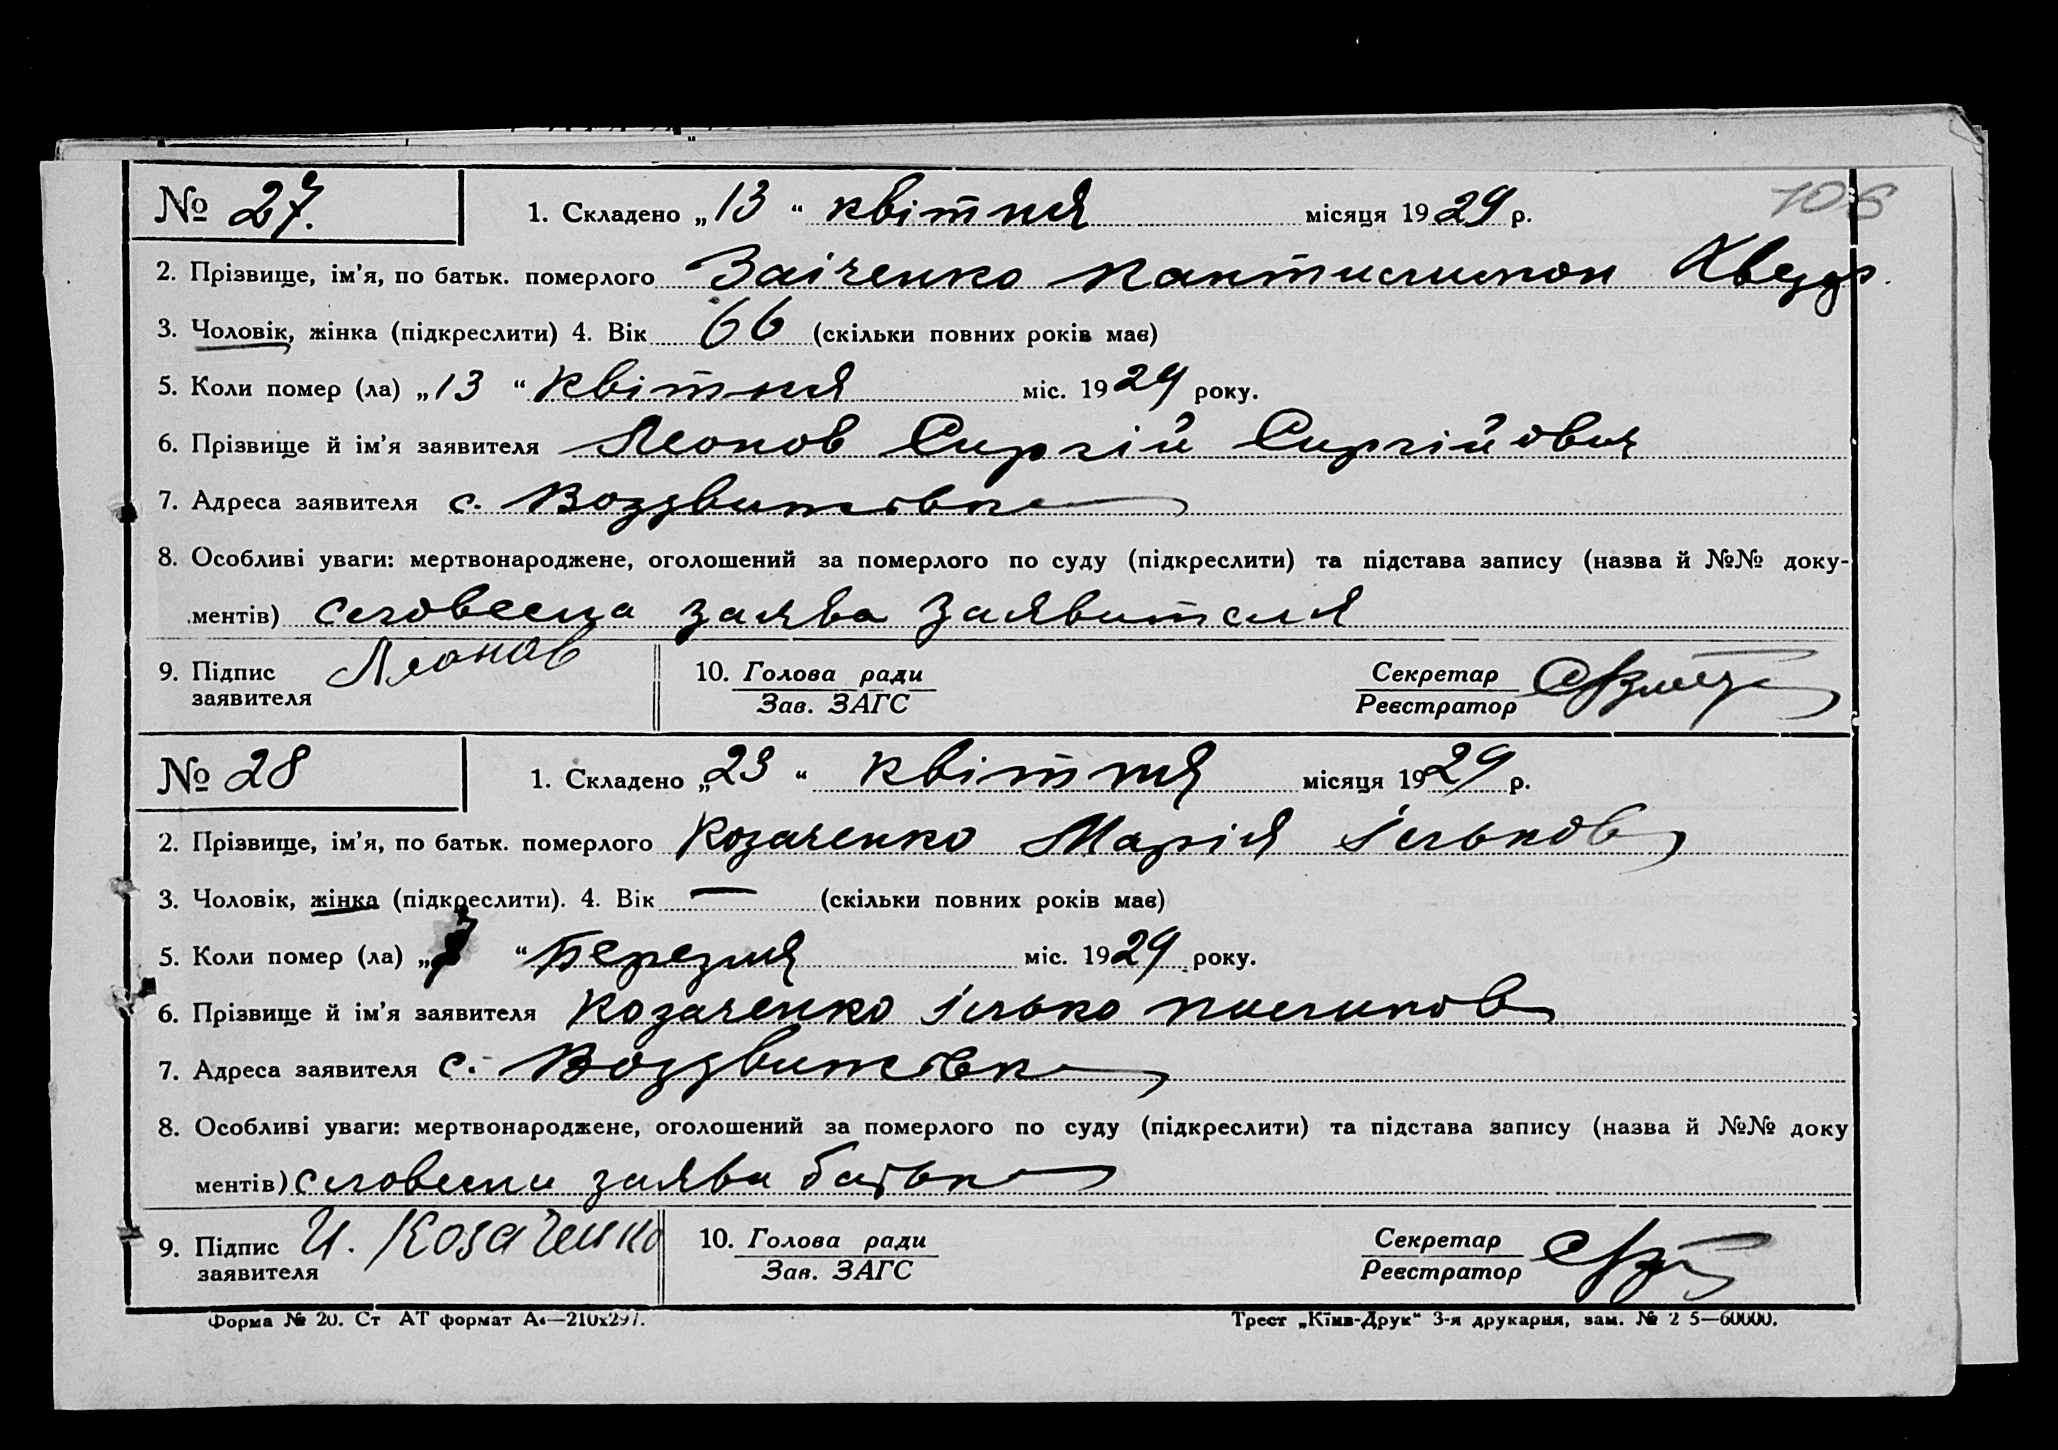 № 27. 1. Складено „13“ квітня місяця 1929 р.
108
2. Прізвище, ім’я, по батьк. померлого Заіченко
3. Чоловік, жінка (підкреслити) 4. Вік 66 (скільки повних років має)
5. Коли помер (ла) „13“ квітня міс. 1929 року.
6. Прізвище й ім’я заявителя Леонов Сиргій Сиргійович
7. Адреса заявителя с. Воздвижівка
8. Особливі уваги: мертвонароджене, оголошений за померлого по суду (підкреслити) та підстава запису (назва й №№ доку-
ментів) словесна заява заявителя
9. Підпис Леонов 10. Голова ради Секретар
заявителя Зав. ЗАГС Реєстратор
№ 28 1. Складено „23“ квітня місяця 1929 р.
2. Прізвище, ім’я, по батьк. померлого Козаченко Марія Ільков
3. Чоловік, жінка (підкреслити). 4. Вік — (скільки повних років має)
5. Коли помер (ла) „ “ Березня міс. 1929 року.
6. Прізвище й ім’я заявителя Козаченко Ілько
7. Адреса заявителя с. Воздвижівка
8. Особливі уваги: мертвонароджене, оголошений за померлого по суду (підкреслити) та підстава запису (назва й №№ доку
ментів) словесна заява батька
9. Підпис И. Козаченко 10. Голова ради Секретар
заявителя Зав. ЗАГС Реєстратор
Форма № 20. Ст АТ формат А4—210х297. Трест „Київ-Друк“ 3-я друкарня, зам. № 2 5—60000.